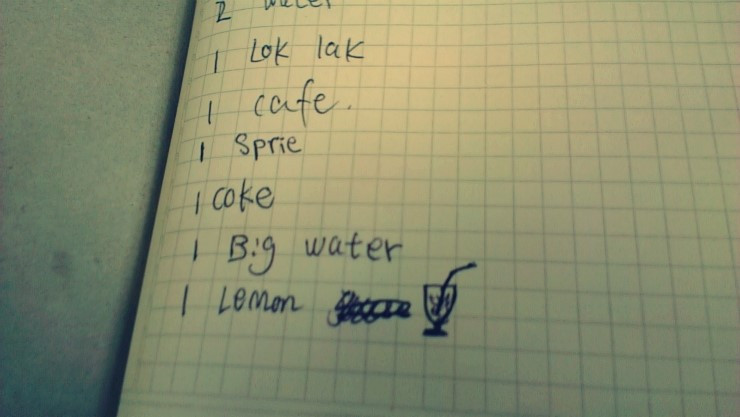 2 water
1 Lok lak
1 cafe.
1 Sprie
1 coke
1 Big water
1 Lemon